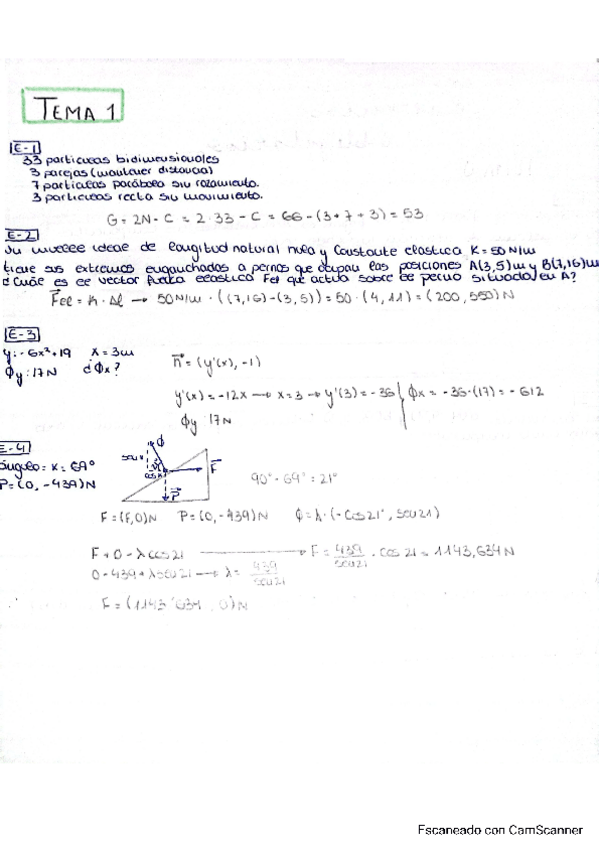 TEMA 1
E-1
33 particulas bidimensionales
3 parejas (mantener distancia)
7 particulas parábola sin rozamiento.
3 particulas recta sin movimiento.
G = 2N - C = 2·33 - C = 66 - (3+7+3) = 53
E-2
Un muelle ideal de longitud natural nula y constante elastica K = 50 N/m
tiene sus extremos enganchados a pernos que ocupan las posiciones A(3,5)m y B(7,16)m
¿Cuál es el vector fuerza elastica Fel que actua sobre el perno situado en A?
Fel = K · Δl → 50 N/m · ((7,16)-(3,5)) = 50 · (4,11) = (200, 550) N
E-3
y = -6x²+19 x = 3m
ϕy = 17N ¿ϕx?
n = (y'(x), -1)
y'(x) = -12x → x = 3 → y'(3) = -36 ϕx = -36·(17) = -612
ϕy = 17N
E-4
ángulo = α = 69°
P = (0, -439) N
ϕ
F
P
90° - 69° = 21°
F = (F,0)N P = (0, -439) N ϕ = λ · (-cos21°, sen21)
F + 0 - λ cos21 → F = 439/sen21 · cos 21 = 1143,634 N
0 - 439 + λ sen21 → λ = 439/sen21
F = (1143'634, 0) N
Escaneado con CamScanner